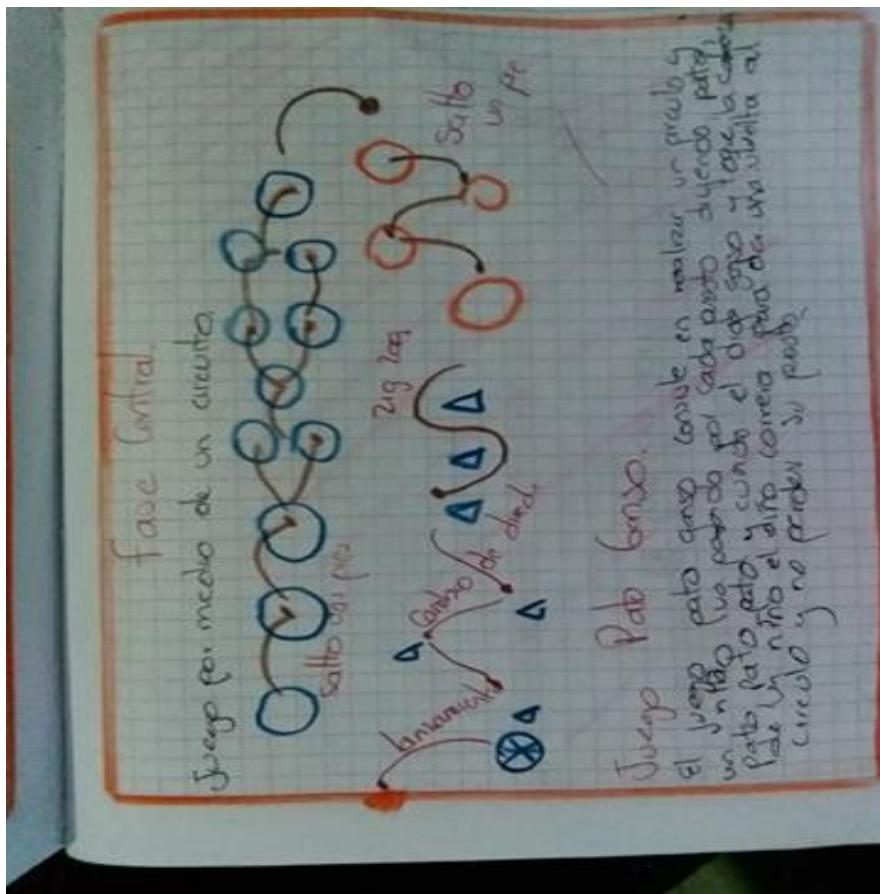 Fase Central.
Juego por medio de un circuito.
Salto dos pies
Salto
un pie
zig zag
Cambio de direc.
lanzamiento
Juego Pato Ganso.
El juego pato ganso consiste en realizar un circulo y
un niño va pasando por cada puesto diciendo pato,
pato pato pato y cuando el diga ganso y toque la cabeza
de un niño el niño correra para dar una vuelta al
circulo y no perder su puesto.